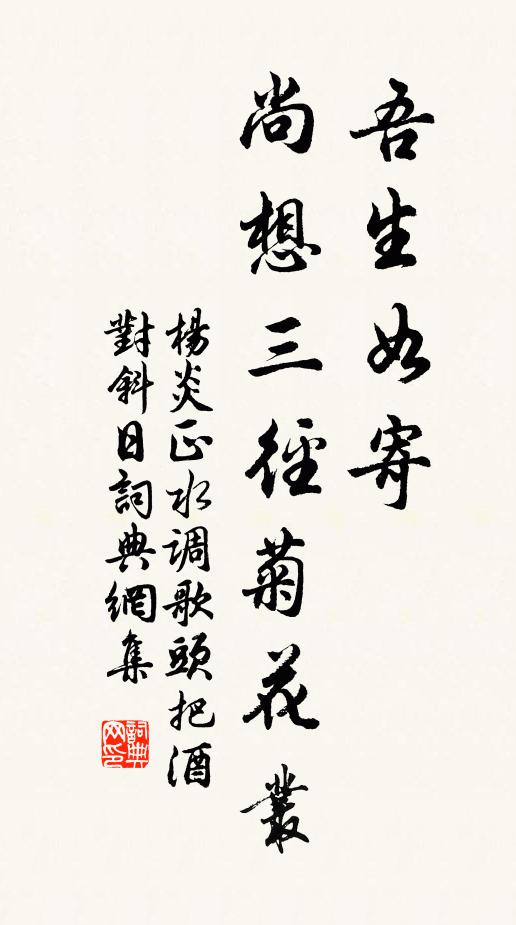 吾生如寄
尚想三徑菊花叢
楊炎正水调歌頭把酒
對斜日詞典網集
詞典
网印